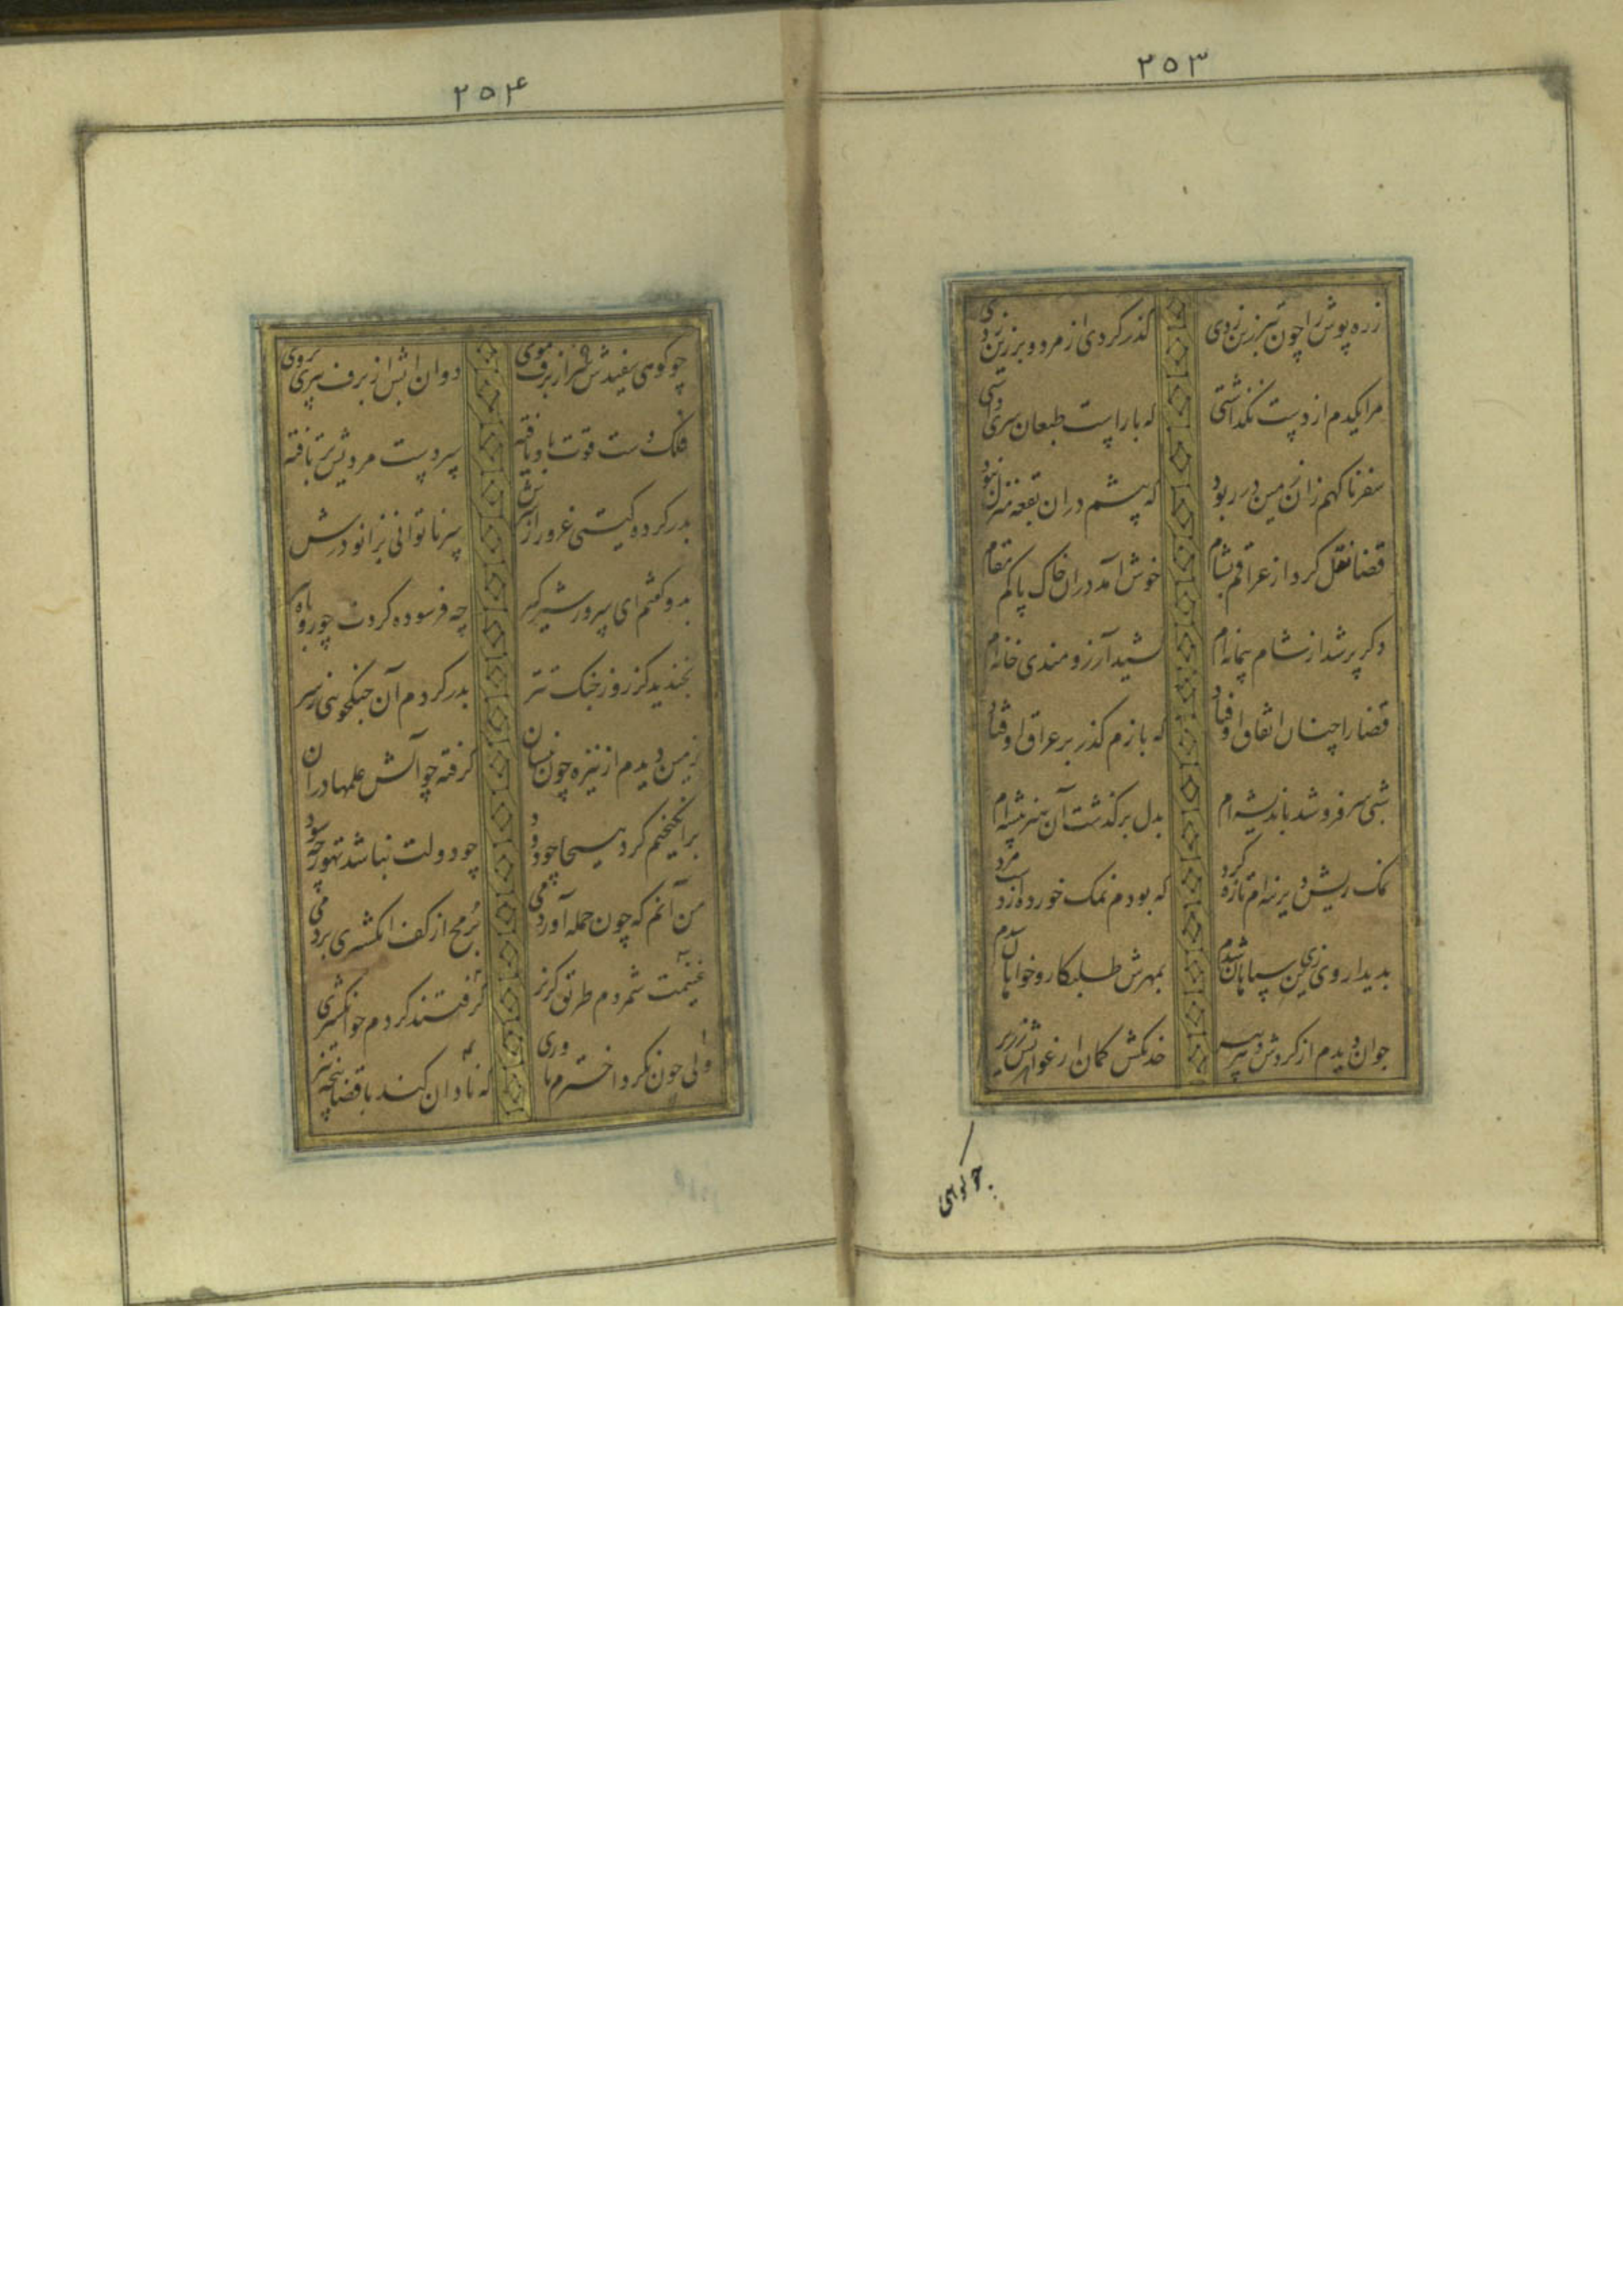 ۲۵۳
زره پوش را چون تبرزین زدی گذر کردی از مرد و بر زین زدی
مرا یکدم از دست نگذاشتی که با راست طبعان سری داشتی
سفر ناگهم زان زمین در ربود که بیشم در آن بقعه منزل نبود
قضا نقل کرد از عراقم بشام خوش آمد در آن خاک پاکم مقام
دگر پر شد از شام پیمانه‌ام کشید آرزومندی خانه‌ام
قضا را چنان اتفاق اوفتاد که بازم گذر بر عراق اوفتاد
شبی سر فرو شد باندیشه‌ام بدل برگذشت آن هنرپیشه‌ام
نمک ریش دیرینه‌ام تازه کرد که بودم نمک خورده از دست مرد
بدیدار وی زی سپاهان شدم بمهرش طلبکار و خواهان شدم
جوان دیدم از گردش دهر پیر خدنگش کمان ارغوانش زریر
چو کوهی
۲۵۴
چو کوهی سفیدش سر از برف موی دوان آبش از برف پیری بروی
فلک دست قوت باو یافته سر دست مردیش بر تافته
بدر کرده گیتی غرور از سرش سر ناتوانی بزانو درش
بدو گفتم ای سرور شیرگیر چه فرسوده کردت چو روباه
بخندید کز روز جنگ تتر بدر کردم آن جنگجویی ز سر
زمین دیدم از نیزه چون نیستان گرفته چو آتش علمها در آن
برانگیختم گرد هیجا چو دود چو دولت نباشد تهور چه سود
من آنم که چون حمله آوردمی برمح از کف انگشتری بردمی
ولی چون نکرد اخترم یاوری گرفتند گردم چو انگشتری
غنیمت شمردم طریق گریز که نادان کند با قضا پنجه تیز